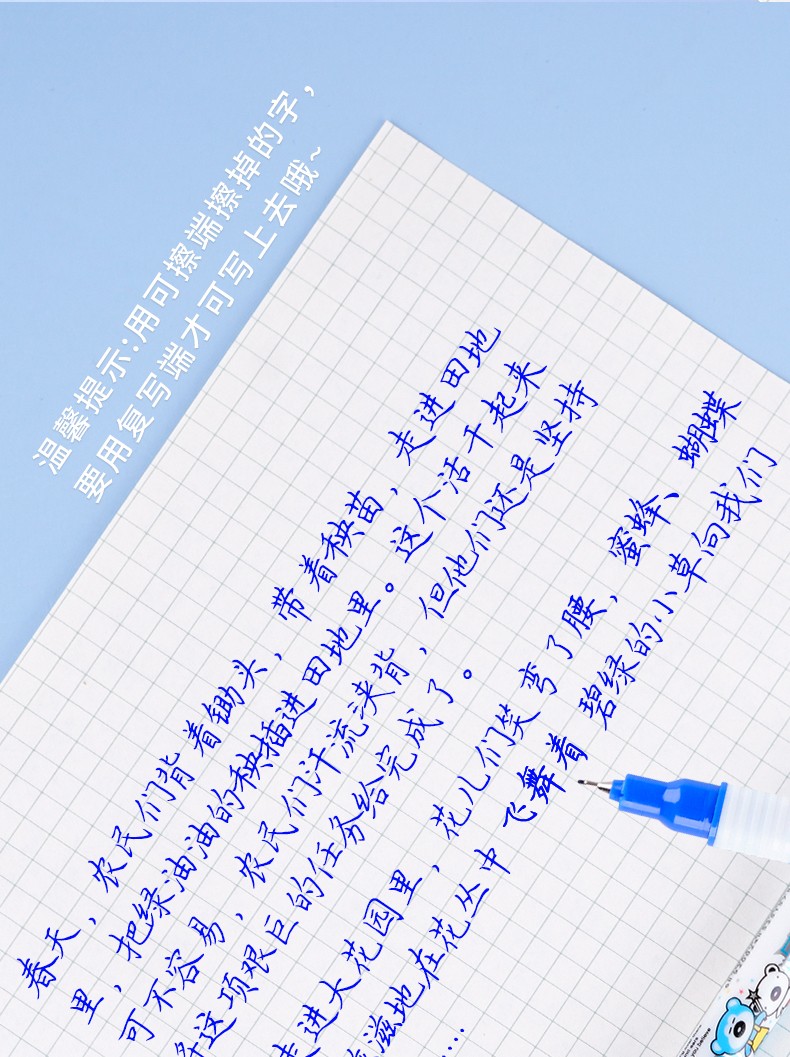 温馨提示:用可擦端擦掉的字，
要用复写端才可写上去哦~
春天，农民们背着锄头，带着秧苗，走进田地
里，把绿油油的秧插进田地里。这个活干起来
可不容易，农民们汗流浃背，但他们还是坚持
将这项艰巨的任务给完成了。
走进大花园里，花儿们笑弯了腰，蜜蜂、蝴蝶
滋地在花丛中飞舞着 碧绿的小草向我们